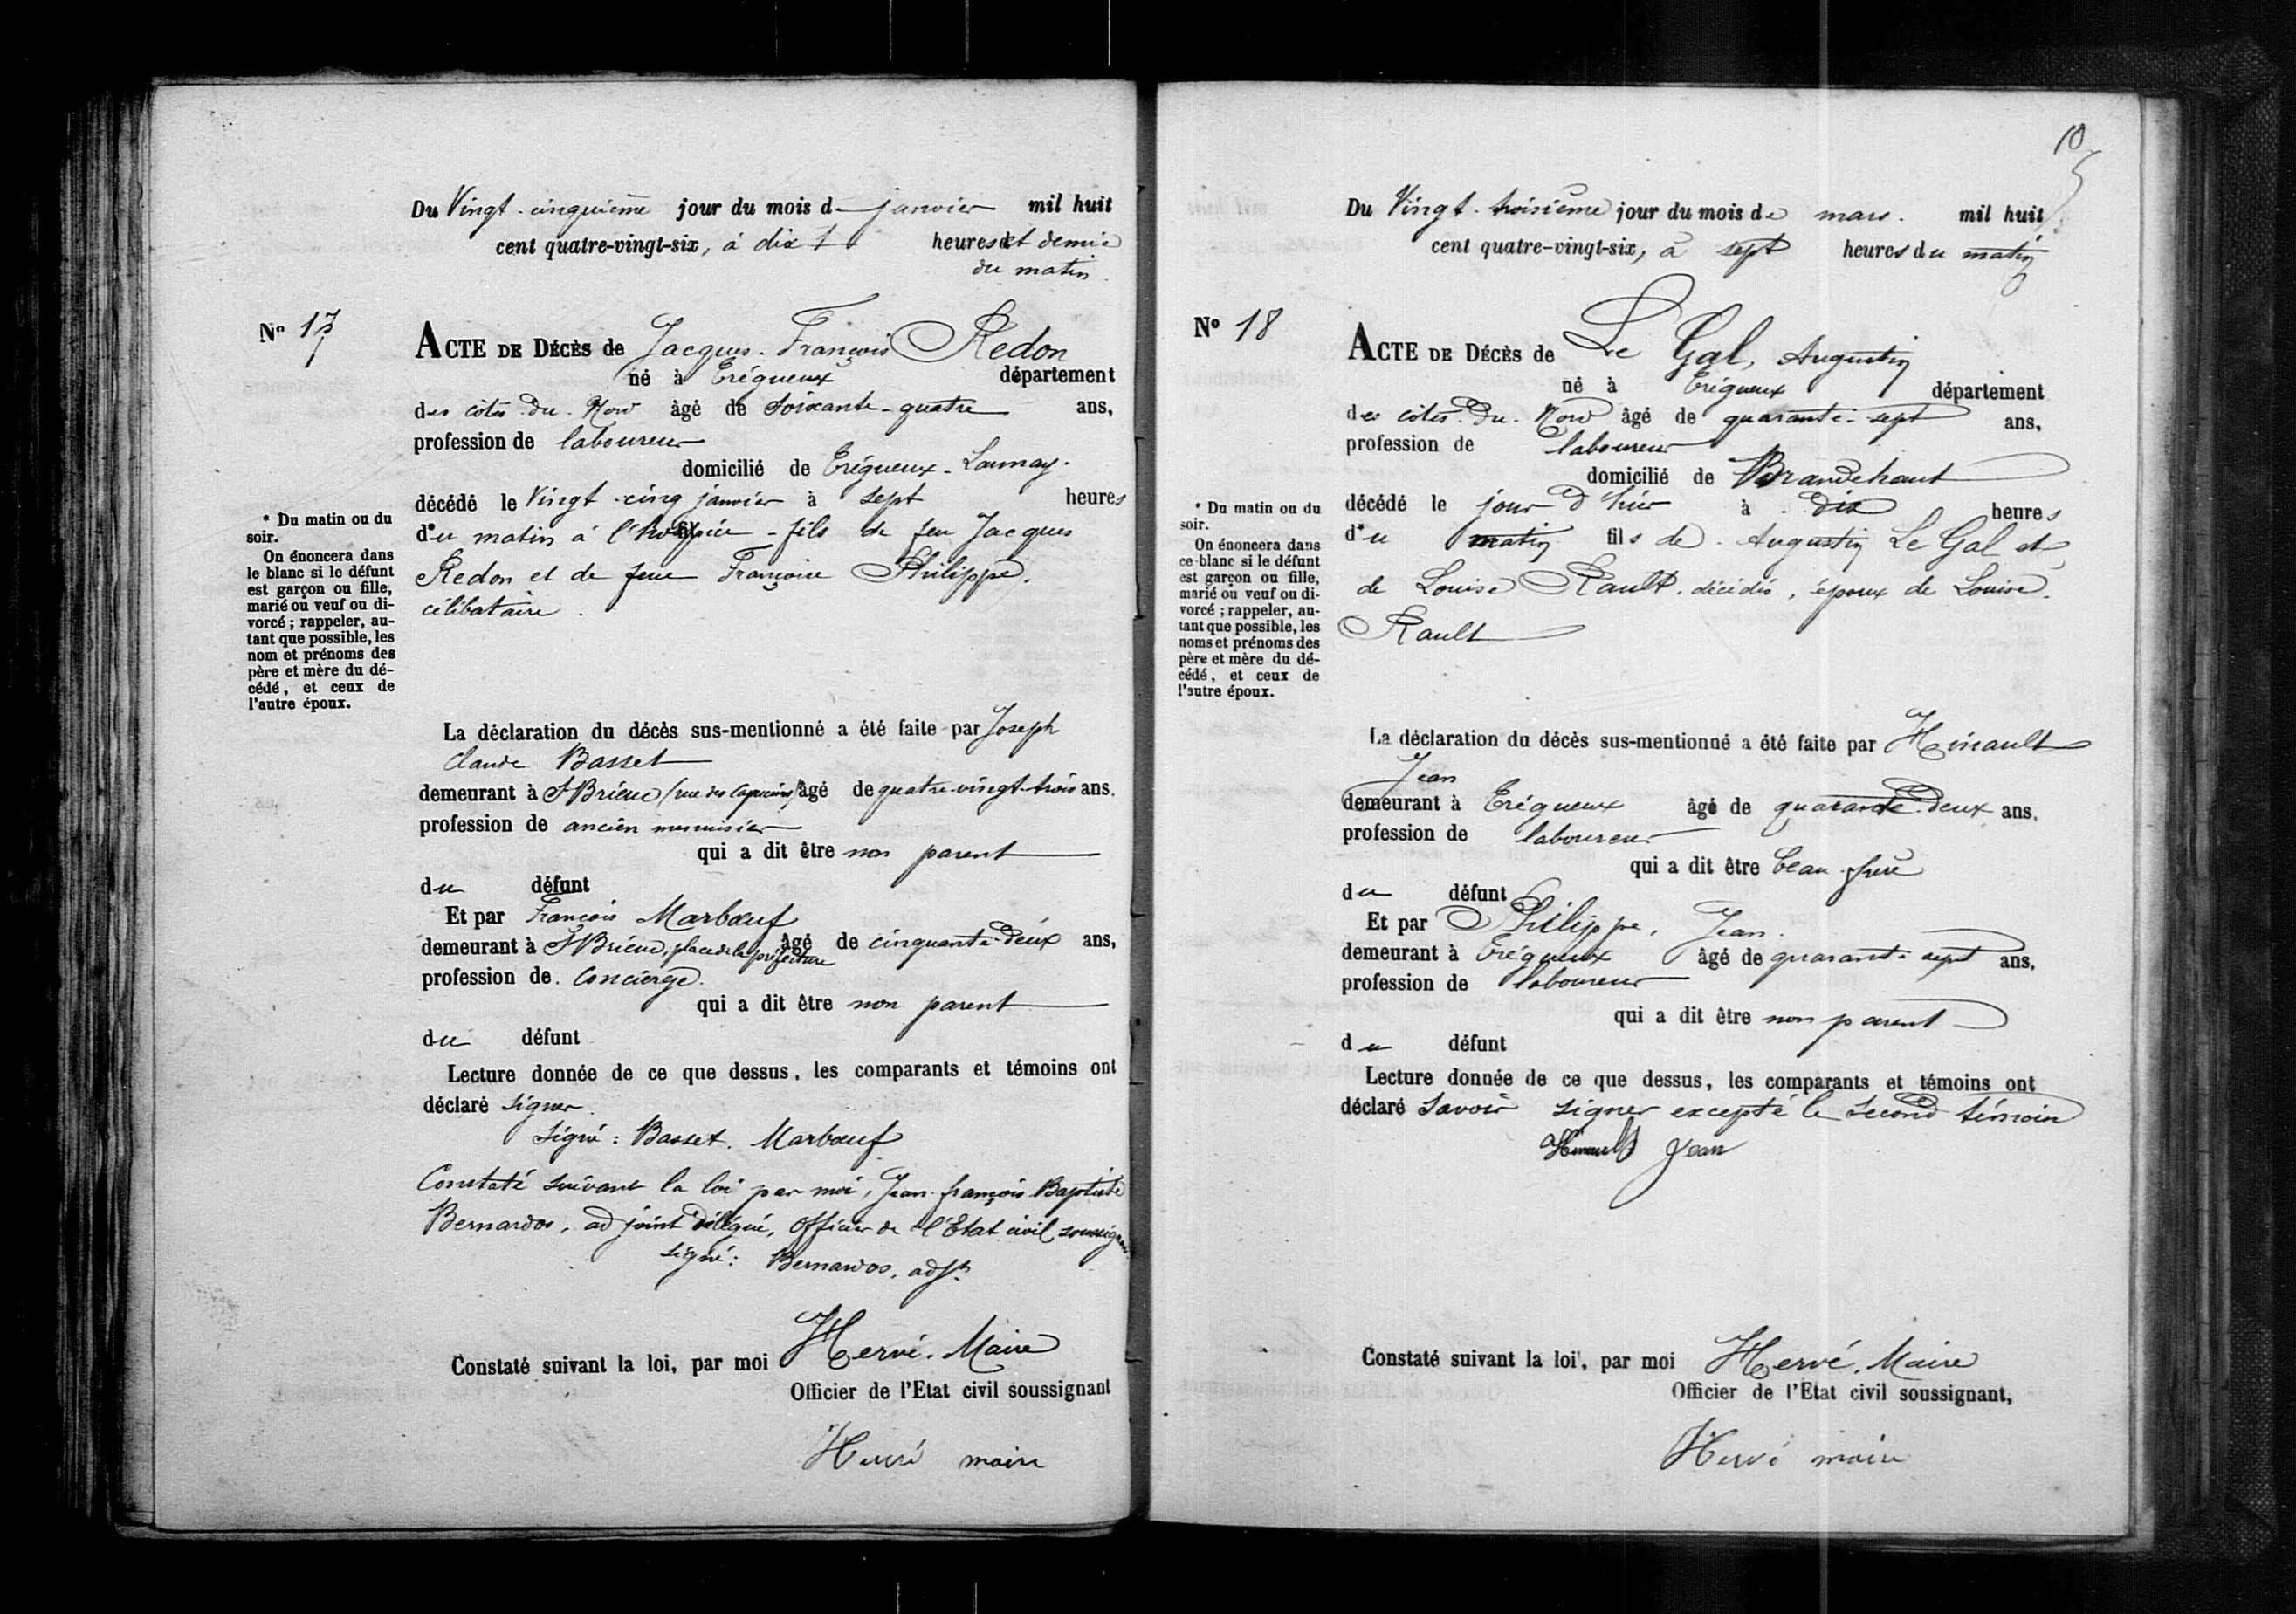 Du Vingt-cinquième jour du mois de janvier mil huit
cent quatre-vingt-six, à dix heures et demie
du matin
N° 17
ACTE DE DÉCÈS de Jacques-François Redon
né à Trégueux département
des côtes-du-Nord âgé de soixante-quatre ans,
profession de laboureur
domicilié de Trégueux-Launay.
décédé le Vingt-cinq janvier à sept heures
du matin à l'hospice - fils de feu Jacques
Redon et de feue Françoise Philippe,
célibataire.
* Du matin ou du
soir.
On énoncera dans
le blanc si le défunt
est garçon ou fille,
marié ou veuf ou di-
vorcé ; rappeler, au-
tant que possible, les
nom et prénoms des
père et mère du dé-
cédé, et ceux de
l'autre époux.
La déclaration du décès sus-mentionné a été faite par Joseph
Claude Basset
demeurant à St Brieuc (rue des Capucins) âgé de quatre-vingt-trois ans.
profession de ancien menuisier
qui a dit être non parent
du défunt
Et par François Marbœuf
demeurant à St Brieuc, place de la préfecture âgé de cinquante-deux ans,
profession de concierge.
qui a dit être non parent
du défunt
Lecture donnée de ce que dessus, les comparants et témoins ont
déclaré signer.
Signé : Basset. Marbœuf
Constaté suivant la loi par moi, Jean-françois-Baptiste
Bernardos, adjoint délégué, officier de l'Etat civil soussigné.
signé : Bernardos, adjt.
Constaté suivant la loi, par moi Hervé, Maire
Officier de l'Etat civil soussignant
Hervé maire
10
Du Vingt-troisième jour du mois de mars mil huit
cent quatre-vingt-six, à sept heures du matin
N° 18
ACTE DE DÉCÈS de Le Gal, Augustin
né à Trégueux département
des côtes-du-Nord âgé de quarante-sept ans,
profession de laboureur
domicilié de Brandehaut
décédé le jour d'hier à dix heures
du matin fils de Augustin Le Gal et
de Louise Rault, décédés, époux de Louise
Rault
* Du matin ou du
soir.
On énoncera dans
ce blanc si le défunt
est garçon ou fille,
marié ou veuf ou di-
vorcé ; rappeler, au-
tant que possible, les
noms et prénoms des
père et mère du dé-
cédé, et ceux de
l'autre époux.
La déclaration du décès sus-mentionné a été faite par Hinault
Jean
demeurant à Trégueux âgé de quarante-deux ans.
profession de laboureur
qui a dit être beau-frère
du défunt
Et par Philippe, Jean.
demeurant à Trégueux âgé de quarante-sept ans.
profession de laboureur
qui a dit être non parent
du défunt
Lecture donnée de ce que dessus, les comparants et témoins ont
déclaré savoir signer excepté le second témoin
Hinault Jean
Constaté suivant la loi, par moi Hervé, Maire
Officier de l'Etat civil soussignant,
Hervé maire